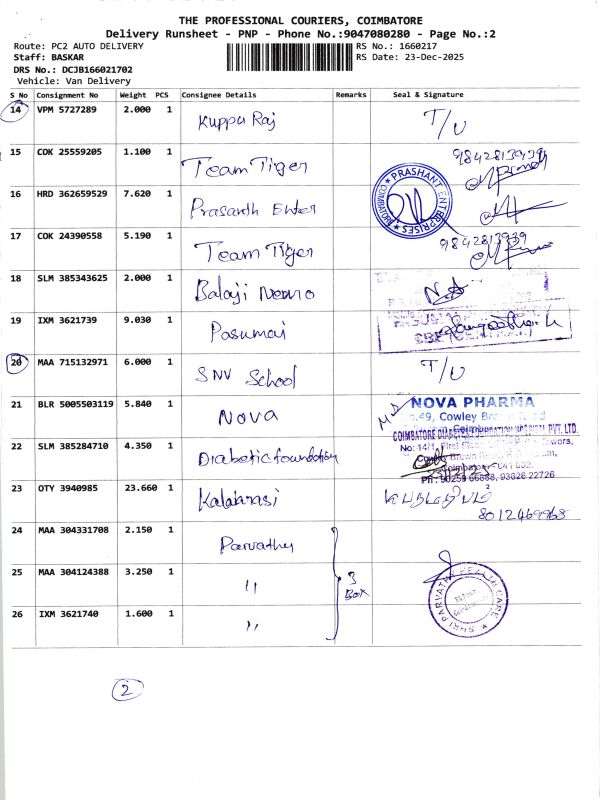 THE PROFESSIONAL COURIERS, COIMBATORE
Delivery Runsheet - PNP - Phone No.:9047080280 - Page No.:2
Route: PC2 AUTO DELIVERY
RS No.: 1660217
Staff: BASKAR
RS Date: 23-Dec-2025
DRS No.: DCJB166021702
Vehicle: Van Delivery
S No Consignment No Weight PCS Consignee Details Remarks Seal & Signature
14 VPM 5727289 2.000 1 Kuppu Raj T/U
15 COK 25559205 1.100 1 Team Tiger 9842813939
16 HRD 362659529 7.620 1 Prasanth Enter PRASHANT ENTERPRISES
17 COK 24390558 5.190 1 Team Tiger 9842813939
18 SLM 385343625 2.000 1 Balaji Neuro
19 IXM 3621739 9.030 1 Pasumai
20 MAA 715132971 6.000 1 SNV School T/U
21 BLR 5005503119 5.840 1 Nova NOVA PHARMA
49, Cowley Brown Road
22 SLM 385284710 4.350 1 Diabetic foundation
COIMBATORE DIABETES FOUNDATION HOSPITAL PVT. LTD.
No: 14/1, First Floor
Ph: 90259 66888, 93626 22726
23 OTY 3940985 23.660 1 Kalaiarasi
8012469968
24 MAA 304331708 2.150 1 Parvathy
25 MAA 304124388 3.250 1 " 3 Box SHRI PARVATHI HEALTH CARE
26 IXM 3621740 1.600 1 "
2